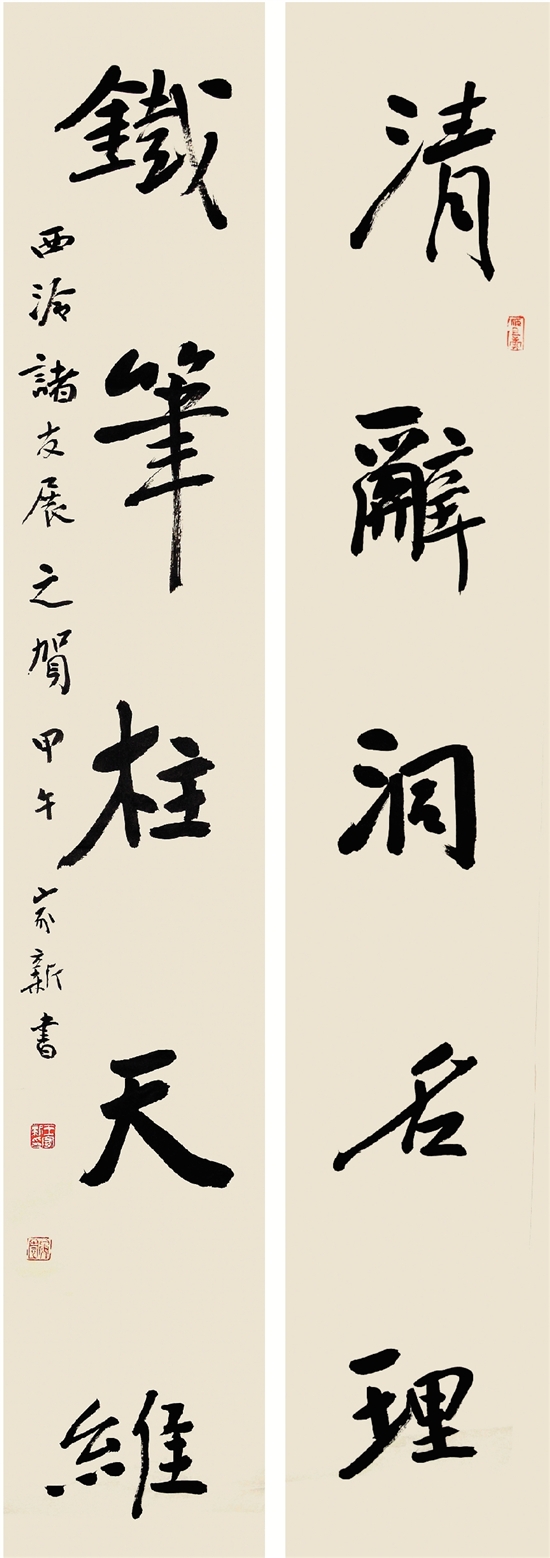 清辭洞名理
鐵筆柱天維
西泠諸友展之賀甲午家新書